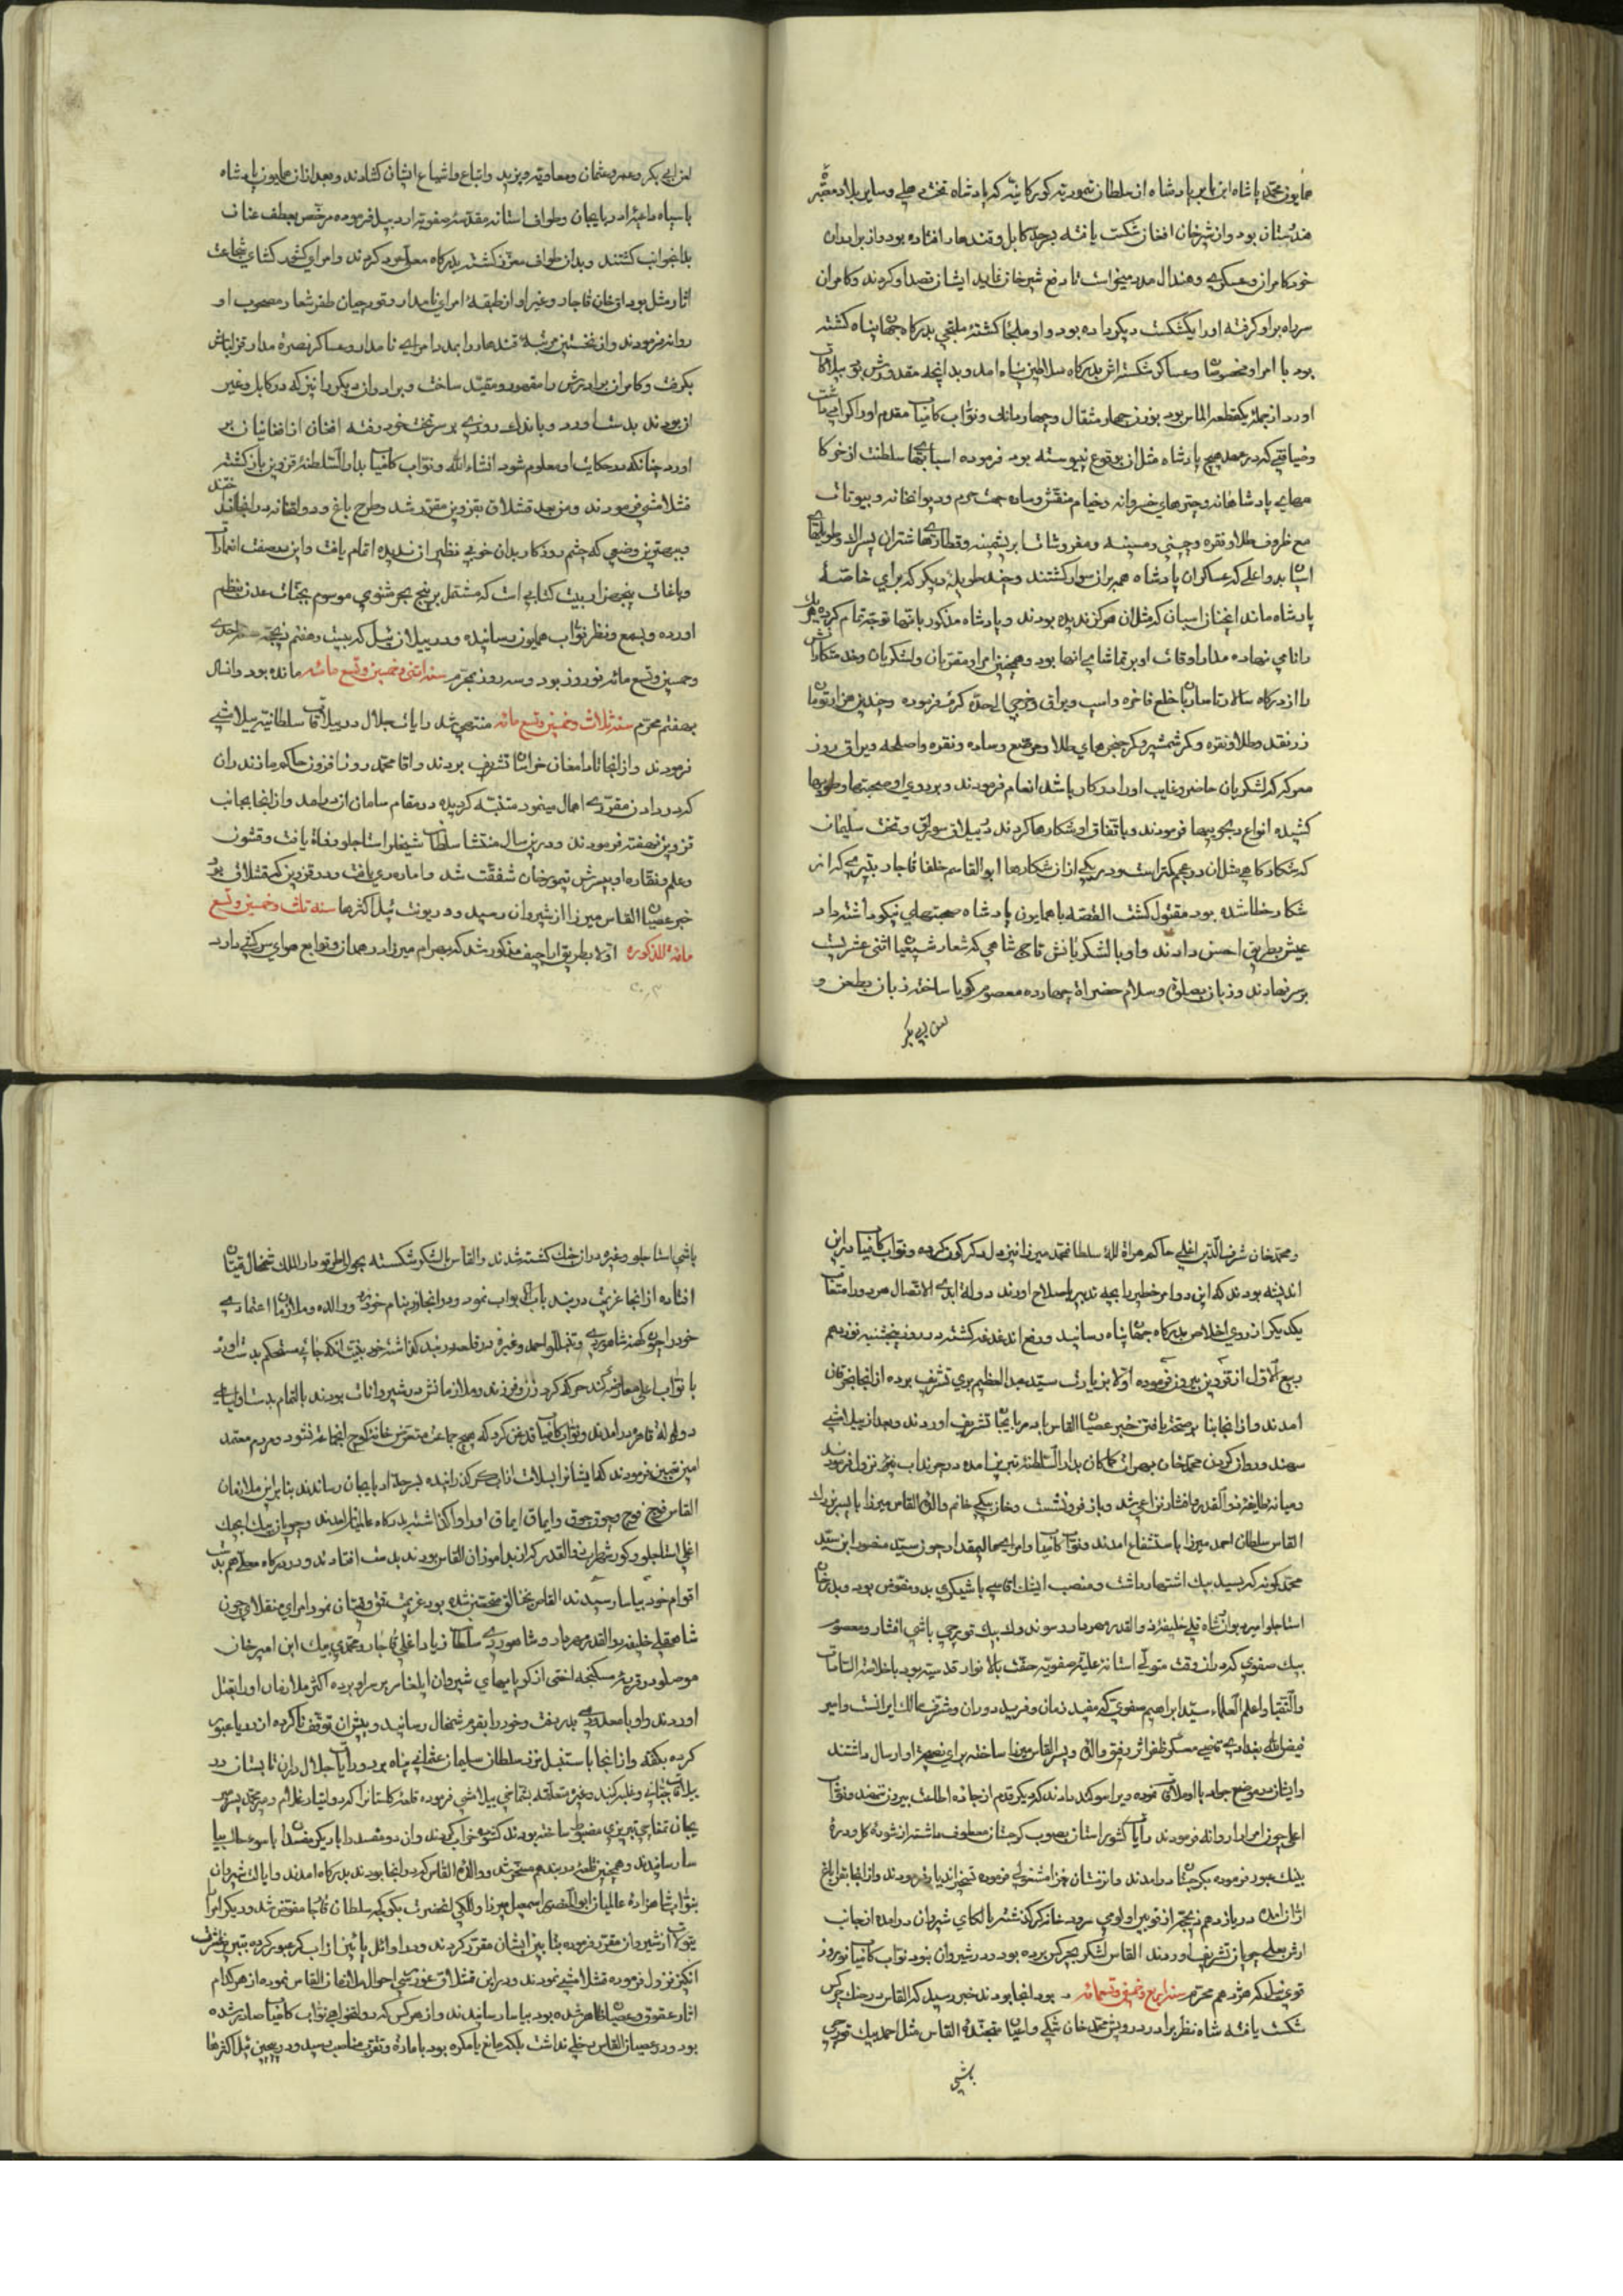 همایون محمد پاشاه ابن بابر پادشاه از سلطان تیموریه کورکانیه که پادشاه تخت دهلی و سایر بلاد معتبره
هندستان بود و از شیرخان افغان شکست یافته بسرحد کابل و قندهار افتاده بود و از برادران
خود کامران و عسکری و هندال مدد میخواست تا رفع شیرخان نماید ایشان قصد او کردند و کامران
سر راه بر او کرفته او را یکشکست دیکر داده بود و او ملجأ کشته ملتجی بدرکاه جهان پناه کشته
بود با امرا و مخصوصان و عساکر شکسته اش بدرکاه سلاطین پناه امد و بدانچه مقدورش بود بیلاکات
اورد از جمله یکقطعه الماس بود بوزن چهار مثقال و چهار دانک و نواب کامیاب مقدم او را کرامی داشت
و ضیافتی که در عهد هیچ پادشاه مثل ان بوقوع نپیوسته بود فرموده اسبابهای سلطنت از خرکا
ههای پادشاهانه و چترهای خسروانه و خیام منقش و ساده جهت حرم و دیوانخانه و بیوتات
مع ظروف طلا و نقره و چینی و مسینه و مفروشات ابریشمینه و قطارهای شتران
اسبان بدو اعلی که عساکران پادشاه همه بران سوار کشتند و چند طویله دیکر که برای خاصه
پادشاه ماند اینچنان اسبان که مثل ان هرکز ندیده بودند و پادشاه مذکور بانها توجه تمام کرده هریک
را نامی نهاده مدار اوقات او بر تماشای انها بود و همچنین امرا و مقربان و لشکریان و خدمتکارانش
را از درکاه سالار تا ساربان خلع فاخره و اسپ و یراق و خرجی الحده کرم فرموده و چندین هزار تومان
زر نقد و طلا و نقره و کمر شمشیر و کمر خنجرهای طلا و مرصع و ساده و نقره و اصلحه و یراق روز
معرکه که لشکریان حاضر و غایب او را در کار باشد انعام فرمودند و بر روی او صحبتها و طویها
کشیده انواع دلجوییها فرمودند و باتفاق او شکارها کردند در ییلاق سورلق و تخت سلیمان
که شکارکاهی مثل ان در عجم کمتر است و در یکی از ان شکارها ابوالقاسم خلفا قاجار بتیری که از
شکار خطا شده بود مقتول کشت القصه با همایون پادشاه صحبتهای نیکو داشته داد
عیش بطریق احسن دادند و او با لشکریانش تاج شاهی که شعار شیعیان اثنی عشریست
بر سر نهادند و زبان بصلوة و سلام حضراة چهارده معصوم کویا ساخته زبان بطعن و
لعن ابی بکر
لعن ابی بکر و عمر و عثمان و معاویه و یزید و اتباع و اشیاع ایشان کشادند و بعد از ان همایون پادشاه
با سپاه ماجرا اذربایجان و طواف استانه مقدسه صفویه اردبیل فرموده مرخص بعطف عنان
بدانجوانب کشتند و بدان طواف معزز کشته بدرکاه معلی عود کردند و امرای کشور کشای شجاعت
اثار مثل بوداق خان قاجار و غیر او از طبقه امرای نامدار و قورچیان ظفر شعار مصحوب او
روانه فرمودند و از نخستین مرتبه قندهار را بمدد امرای نامدار و عساکر نصرة مدار قزلباش
بکرفت و کامران برادرش را مقهور و مقید ساخت و برادران دیکر را نیز که در کابل و غیر
ان بودند بدست اورد و باندک روزی بر سر تخت خود رفته افغان از افغانیان بر
اورد چنانکه در حکایت او معلوم شود انشاء الله و نواب کامیاب بدار السلطنه قزوین باز کشته
قشلامشی فرمودند و من بعد قشلاق بقزوین مقرر شد و طرح باغ و دولتخانه در انجا انداختند
و بهترین وضعی که چشم روزکار بدان خوبی نظیر ان ندیده اتمام یافت و این در صفت انعمارات
و باغات پنجهزار بیت کتابی است که مشتمل بر پنج بحر مثنوی موسوم بجنات عدن بنظم
اورده و بسمع و نظر نواب همایون رسانیده و در ییلان ئیل که بیست و هفتم ذیحجه سنه احدی
و خمسین و تسع مائه نوروز بود و سه روز بمحرم سنه اثنی و خمسین و تسع مائه مانده بود و انسال
بهفتم محرم سنه ثلاث و خمسین و تسع مائه منتهی شد رایات جلال در ییلاقات سلطانیه ییلامشی
فرمودند و از انجا تا دامغان خراسان تشریف بردند و اقا محمد روز افزون حاکم مازندران
که در دادن مقرری اهمال مینمود متنبه کردیده در مقام سامان ان درامد و از انجا بجانب
قزوین نهضت فرمودند و در ین سال منتشا سلطان شیخلر استاجلو وفاة یافت و قشون
و علم و نقاره او بپسرش تیمورخان شفقت شد و در قزوین که قشلاق بود
خبر عصیان القاس میرزا از شیروان رسید و در یونت ئیل اکثرها سنه ثلث و خمسین و تسع
مائه المذکوره اولا بطریق اراجیف مذکور شد که بهرام میرزا در همدان و توابع هوای سرکشی دارد
و محمدخان شرف الدین اغلی حاکم هراة لله سلطان محمد میرزا نیز دل دکرکون کرده و نواب کامیاب در این
اندیشه بودند که این دو امر خطیر را بچه تدبیر باصلاح اورند دولة ابدی الاتصال هر دو را متعاقب
یکدیکر از روی اخلاص بدرکاه جهان پناه رسانید و رفع اندغدغه کشته در روز پنجشنبه نوزدهم
ربیع الاول از قزوین بیرون فرموده اولا بزیارت سید عبدالعظیم بری تشریف برده از انجا بخرقان
امدند و از انجا بنا بر صحت یافتن خبر عصیان القاس باذربایجان تشریف اوردند و بعد از ییلامشی
سهند و روان کردن محمدخان بهراة کماکان بدار السلطنه تبریز امده در چرنداب نزول فرمودند
و میانه طایفه ذوالقدر و افشار نزاعی شد و باز فرونشست و خان بیکی خانم والده القاس میرزا با پسر بزرک
القاس سلطان احمد میرزا باستشفاع امدند و نواب کامیاب و امرای عالیمقدار چون سید منصور ابن سید
محمد کمونه که بسید بیک اشتهار داشت و منصب ایشیک اقاسی باشیکری بدو مفوض بود و بدرخان
استاجلو امیر دیوان و شاه قلی خلیفه ذوالقدر مهردار و سوندوک بیک قورچی باشی افشار و معصوم
بیک صفوی که در ان وقت متولی استانه علیه صفویه حفت بالانوار قدسیه بود با خلاصة السادات
والنقبا و اعلم العلماء سید ابراهیم صفوی که مفید زمان و فرید دوران و مشرف ممالک ایرانست و امیر
فیض الله بغدادی قاضی عسکر ظفر اثر رفیق والده و پسر القاس میرزا ساخته برای نصیحة او ارسال داشتند
و ایشان در موضع جواد با او ملاقات نموده ویرا سوکند دادند که دیکر قدم از جاده اطاعت بیرون ننهد و نواب
اعلی چون امرا را روانه فرمودند رایات کشور استان بصوب کرجستان معطوف داشته از شوره کل و دره
بینک عبور فرموده بکرجستان درامدند و زمستان قشلامشی فرموده تسخیر اندیار فرمودند و از انجا بقراباغ
اران امده در یازدهم ذیحجه از قوین اولومی سرود خانه کر کذشته بالکای شیروان درامده از جانب
ارش بمحلی چوپان تشریف اوردند القاس لشکر بچرکس برده بود و در شیروان نبود نواب کامیاب نوروز
قوی ئیل که هژدهم محرم سنه اربع و خمسین و تسعمائه بود انجا بودند خبر رسید که القاس در جنک چرکس
شکست یافته شاه نظر برادر درویش محمدخان شکی و اعیان متجنده القاس مثل احمد بیک قورچی
باشی
باشی استاجلو و غیره در ان جنک کشته شدند و القاس با لشکر شکسته بحوالی طرقو دار الملک شمخال قیتاق
افتاده از انجا عزیمت دربند باب الابواب نمود و در انجا زر بنام خود زده و والده و ملازمان اعتمادی
خود را چون کهنه شاهوردی و غیره در قلعه دربند کذاشته خود بنیت انکه جائی مستحکم بدست اورد
با نواب اعلی معارضه کند حرکت کرد زن و فرزند و ملازمانش در شیروانات بودند بالتمام بدست اولیای
دولة قاهره درامدند و نواب کامیاب قدغن کرد که هیچ جماعت متعرض خانه کوچ انجماعة نشود و مردم معتمد
امین تعیین فرمودند که ایشانرا بسلامت از اب کر کذرانیده بسرحد اذربایجان رسانند بنا براین ملازمان
القاس فوج فوج و جوق جوق و ایماق ایماق او را واکذاشته بدرکاه عالمپناه امدند و چوپان بیک ایچک
اغلی استاجلو و کور شهسوار ذوالقدر که از بداموزان القاس بودند بدست افتادند و در درکاه معلی هم بدست
اقوام خود بیاسا رسیدند القاس بخنالق متحصن شده بود عزیمت قتق و قیتاق نمود امرای منقلای چون
شاهقلی خلیفه ذوالقدر مهردار و شاهوردی سلطان زیاد اغلی قاجار و محمدی بیک ابن امیرخان
موصلو در قریه سکنجه اختی از کوپایهای شیروان ایلغار بر سر او برده اکثر ملازمان او را بقتل
اوردند و او با معدودی بدر رفت و خود را بقرم شمخال رسانید و بیش از ان توقف ناکرده از دریا عبور
کرده بکفه و از انجا باستنبل نزد سلطان سلیمان عثمانی پناه برد و رایات جلال در ان تابستان در
ییلاقات و غیره متعلقه بشماخی ییلامشی فرموده قلعه کلستانرا که دولتیار غلام و میر محمد پسر میر
جان شماخی تبریزی مضبوط ساخته بودند کشوده خراب کردند و ان دو مفسد را با دیکر مفسدان بیا
سا رسانیدند و همچنین قلعه دربند هم مسخر شد و والده القاس که در انجا بودند بدرکاه امدند و ایالت شیروان
بنواب شاهزاده عالمیان ابوالمظفر اسمعیل میرزا و للکی انحضرت بکوکجه سلطان قاجار مفوض شد و دیکر امرا
بتیولات از شیروان مقرر فرموده بتابین ایشان مقرر کردند و در اوائل پائیز از اب کر عبور کرده بتبریز عشرت
انکیز نزول فرموده قشلامشی نمودند و در این قشلاق غوررسی احوال ملازمان القاس نموده از هرکدام
اثار عقوق و عصیان ظاهر شده بود بیاسا رسانیدند و از هرکس که دولتخواهی نواب کامیاب صادر شده
بود و در عصیان القاس دخلی نداشت بلکه مانع بامکره بود بامارة و تقرب مناصب رسید و در پیچین ئیل اکثرها